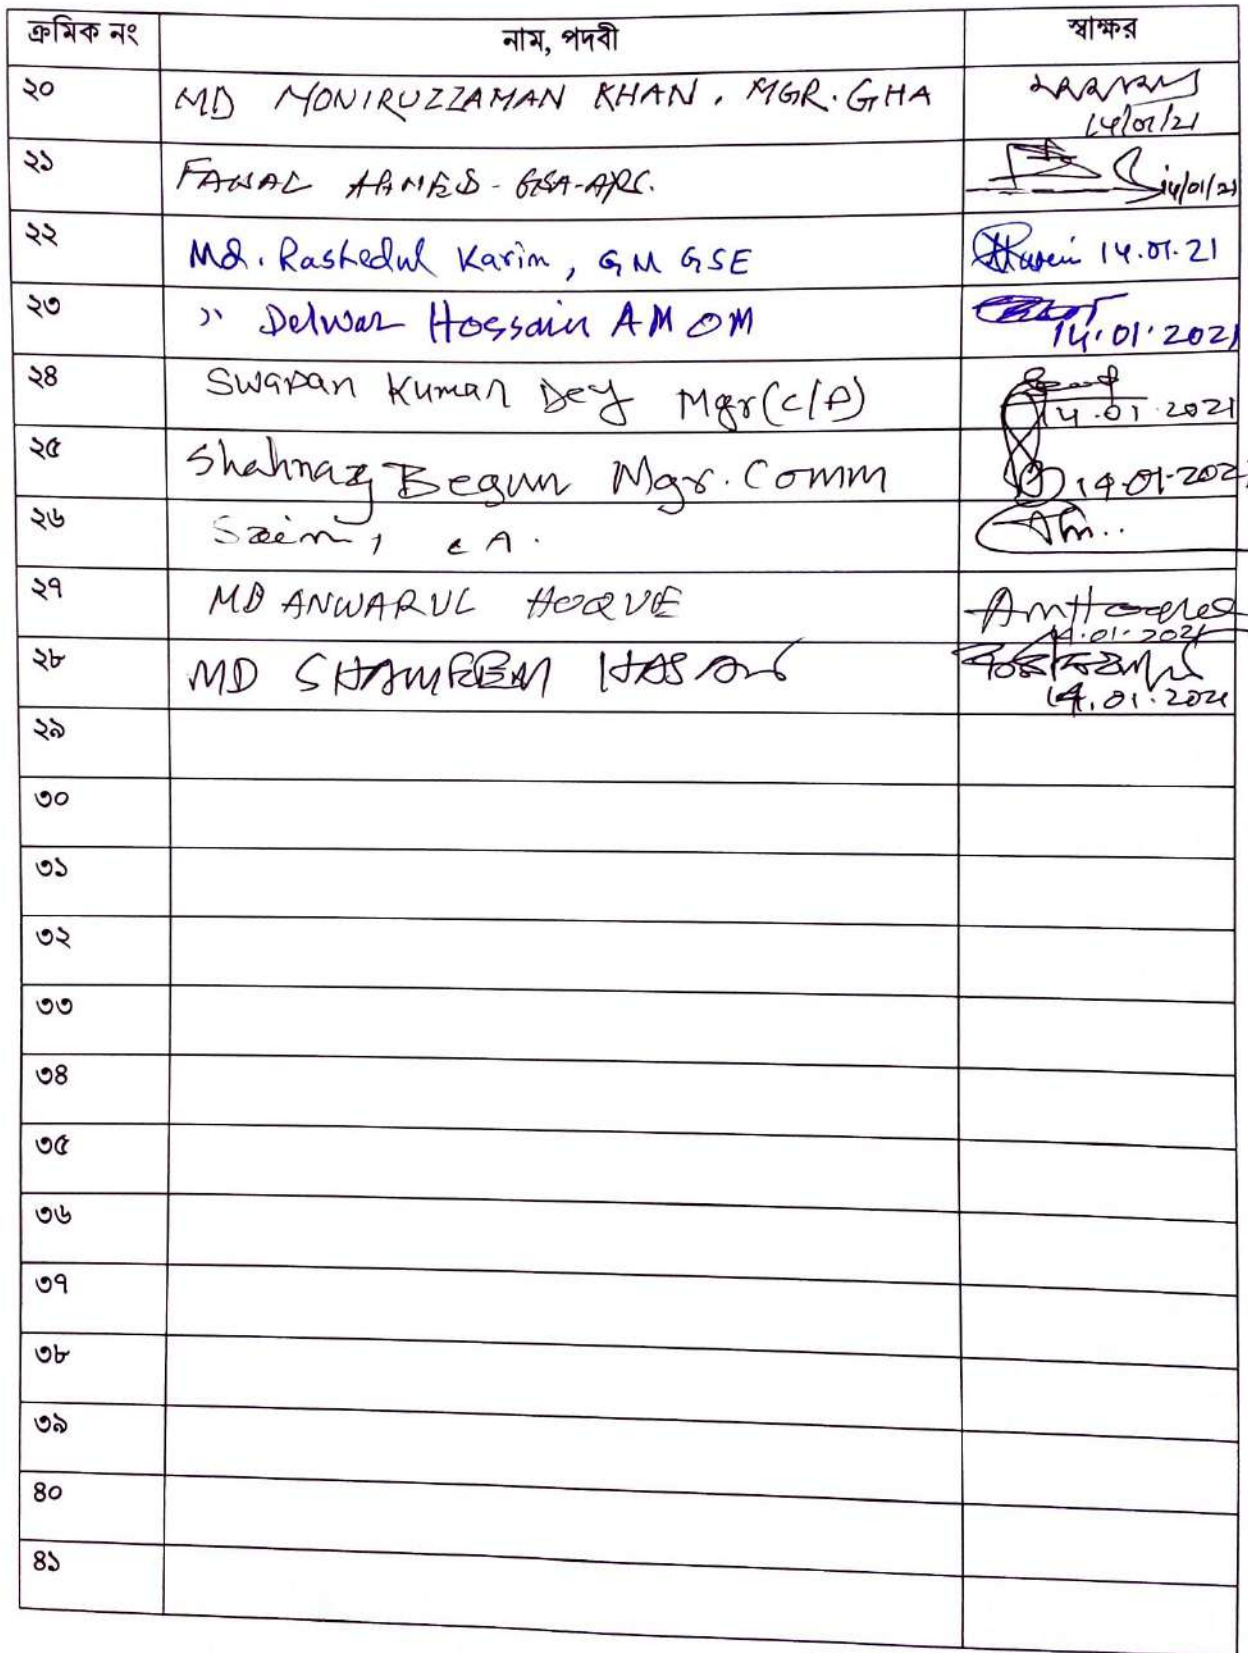 ক্রমিক নং নাম, পদবী স্বাক্ষর
২০ MD MONIRUZZAMAN KHAN. MGR. GHA
14/01/21
২১ AHMED - GSA-APC. 14/01/21
২২ Md. Rashedul Karim, GM GSE Karim 14.01.21
২৩ " Delwar Hossain AM OM
14.01.2021
২৪ Swapan Kumar Dey Mgr(C/A)
14.01.2021
২৫ Shahnaz Begum Mgr. Comm 14-01-2021
২৬ CA.
২৭ MD ANWARUL HOQUE AmHoque
14.01.2021
২৮ MD SHAMEEM HASAN
14.01.2021
২৯
৩০
৩১
৩২
৩৩
৩৪
৩৫
৩৬
৩৭
৩৮
৩৯
৪০
৪১